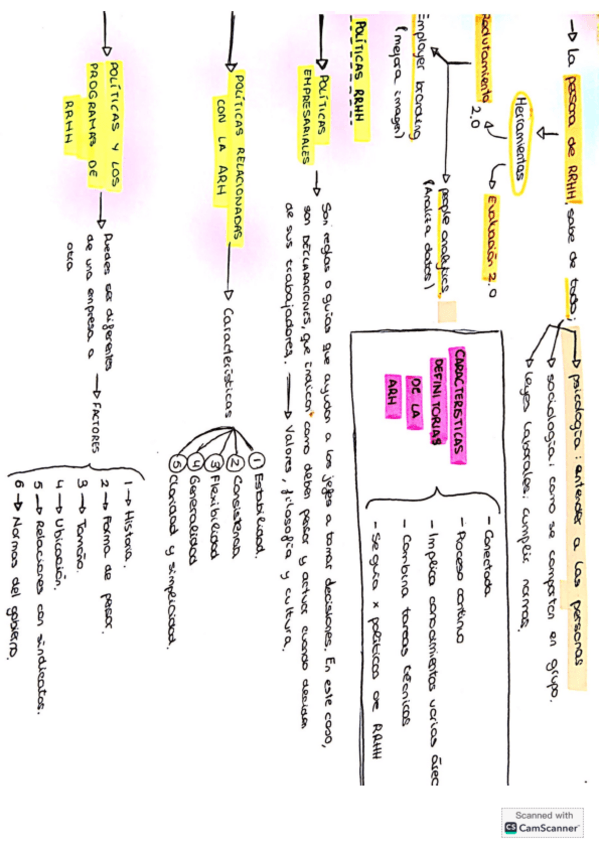 → La persona de RRHH, sabe de todo:
→ psicología: entender a las personas
→ sociología: como se comportan en grupo.
→ leyes laborales: cumplir normas.
Herramientas
Reclutamiento 2.0
Evaluación 2.0
Employer branding
(mejora imagen)
→ people analytics
(Analiza datos)
CARACTERÍSTICAS
DEFINITORIAS
DE LA
ARH
- Conectada
- Proceso continuo
- Implica conocimientos varias áreas
- Combina tareas técnicas
- Se guía x políticas de RRHH
POLÍTICAS RRHH
→ POLÍTICAS
EMPRESARIALES
→ Son reglas o guías que ayudan a los jefes a tomar decisiones. En este caso,
son DECLARACIONES, que indican como deben pensar y actuar cuando deciden
de sus trabajadores. → Valores, filosofía y cultura.
→ POLÍTICAS RELACIONADAS
CON LA ARH
→ Características
① Estabilidad.
② Consistencia
③ Flexibilidad
④ Generalidad
⑤ Claridad y simplicidad.
→ POLÍTICAS Y LOS
PROGRAMAS DE
RRHH
→ Puedes ser diferentes
de una empresa a
otra
→ FACTORES
1 → Historia.
2 → Forma de pensar.
3 → Tamaño.
4 → Ubicación.
5 → Relaciones con sindicatos.
6 → Normas del gobierno.
Scanned with
CS CamScanner